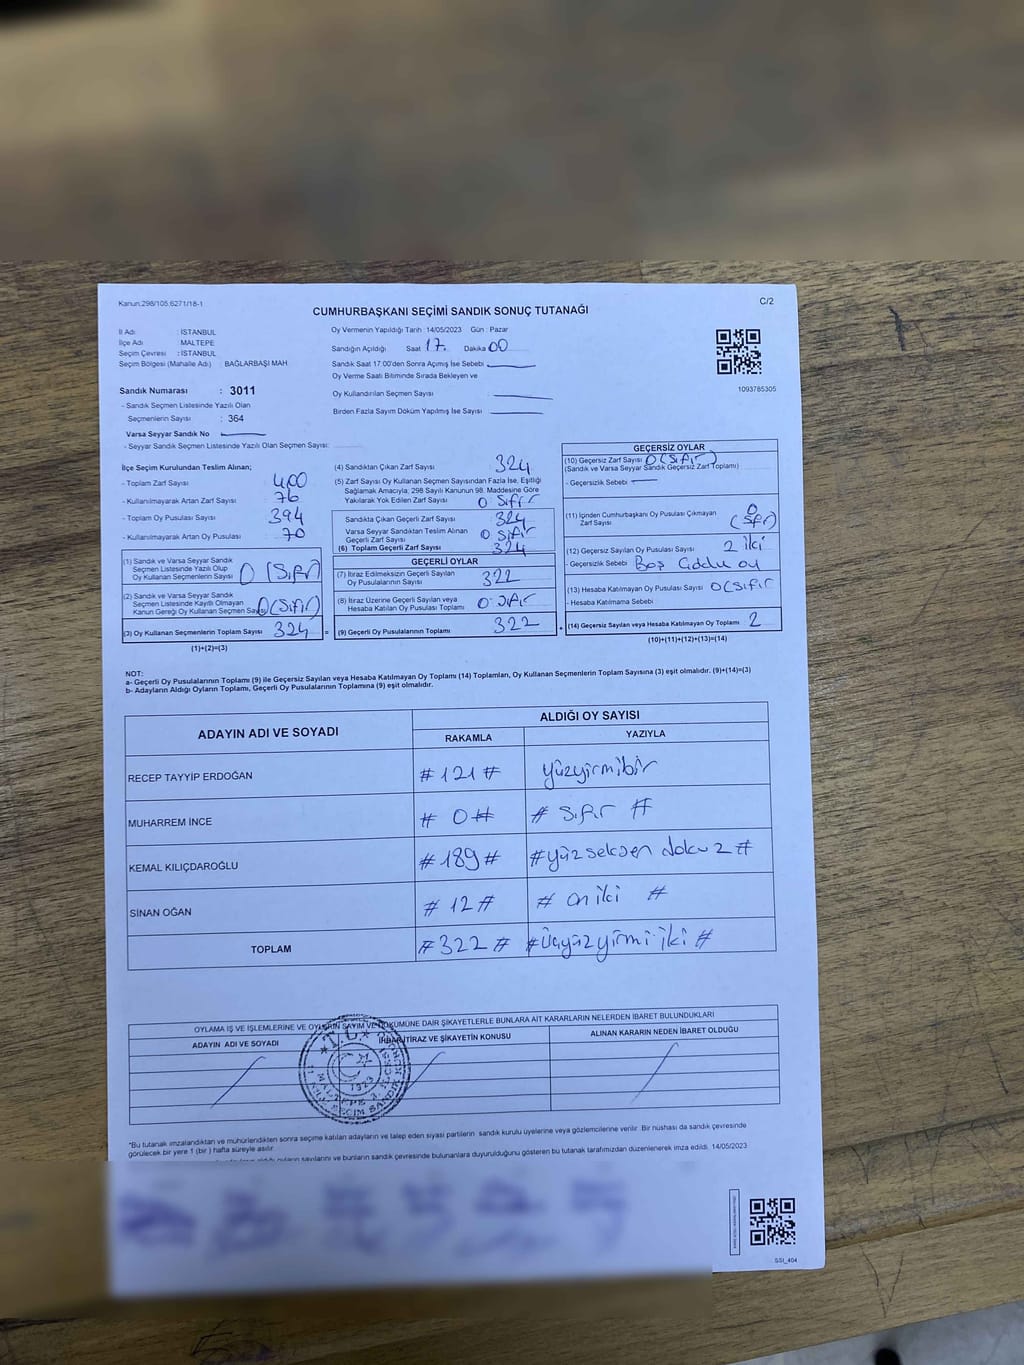 Kanun.298/105,6271/18-1
C/2
CUMHURBAŞKANI SEÇİMİ SANDIK SONUÇ TUTANAĞI
İl Adı : İSTANBUL
İlçe Adı : MALTEPE
Seçim Çevresi : İSTANBUL
Seçim Bölgesi (Mahalle Adı) : BAĞLARBAŞI MAH.
Oy Vermenin Yapıldığı Tarih :14/05/2023 Gün : Pazar
Sandığın Açıldığı Saat 17. Dakika 00
Sandık Saat 17:00'den Sonra Açımış İse Sebebi
Oy Verme Saati Bitiminde Sırada Bekleyen ve
Oy Kullandırılan Seçmen Sayısı
Birden Fazla Sayım Döküm Yapılmış İse Sayısı
1093785305
Sandık Numarası : 3011
- Sandık Seçmen Listesinde Yazılı Olan
Seçmenlerin Sayısı : 364
Varsa Seyyar Sandık No
- Seyyar Sandık Seçmen Listesinde Yazılı Olan Seçmen Sayısı:
İlçe Seçim Kurulundan Teslim Alınan;
- Toplam Zarf Sayısı 400
- Kullanılmayarak Artan Zarf Sayısı 76
- Toplam Oy Pusulası Sayısı 394
- Kullanılmayarak Artan Oy Pusulası 70
(1) Sandık ve Varsa Seyyar Sandık
Seçmen Listesinde Yazılı Olup
Oy Kullanan Seçmenlerin Sayısı 0 (Sıfır)
(2) Sandık ve Varsa Seyyar Sandık
Seçmen Listesinde Kayıtlı Olmayan
Kanun Gereği Oy Kullanan Seçmen Sayısı 0 (Sıfır)
(3) Oy Kullanan Seçmenlerin Toplam Sayısı 324 =
(1)+(2)=(3)
(4) Sandıktan Çıkan Zarf Sayısı 324
(5) Zarf Sayısı Oy Kullanan Seçmen Sayısından Fazla İse, Eşitliği
Sağlamak Amacıyla, 298 Sayılı Kanunun 98. Maddesine Göre
Yakılarak Yok Edilen Zarf Sayısı 0 Sıfır
Sandıkta Çıkan Geçerli Zarf Sayısı 324
Varsa Seyyar Sandıktan Teslim Alınan
Geçerli Zarf Sayısı 0 Sıfır
(6) Toplam Geçerli Zarf Sayısı 324
GEÇERLİ OYLAR
(7) İtiraz Edilmeksizin Geçerli Sayılan
Oy Pusulalarının Sayısı 322
(8) İtiraz Üzerine Geçerli Sayılan veya
Hesaba Katılan Oy Pusulası Toplamı 0 Sıfır
(9) Geçerli Oy Pusulalarının Toplamı 322 +
GEÇERSİZ OYLAR
(10) Geçersiz Zarf Sayısı 0 (Sıfır)
(Sandık ve Varsa Seyyar Sandık Geçersiz Zarf Toplamı)
- Geçersizlik Sebebi
(11) İçinden Cumhurbaşkanı Oy Pusulası Çıkmayan
Zarf Sayısı 0 (Sıfır)
(12) Geçersiz Sayılan Oy Pusulası Sayısı 2 iki
- Geçersizlik Sebebi Boş
(13) Hesaba Katılmayan Oy Pusulası Sayısı 0 (Sıfır
- Hesaba Katılmama Sebebi
(14) Geçersiz Sayılan veya Hesaba Katılmayan Oy Toplamı 2
(10)+(11)+(12)+(13)=(14)
NOT:
a- Geçerli Oy Pusulalarının Toplamı (9) ile Geçersiz Sayılan veya Hesaba Katılmayan Oy Toplamı (14) Toplamları, Oy Kullanan Seçmenlerin Toplam Sayısına (3) eşit olmalıdır. (9)+(14)=(3)
b- Adayların Aldığı Oyların Toplamı, Geçerli Oy Pusulalarının Toplamına (9) eşit olmalıdır.
ADAYIN ADI VE SOYADI
ALDIĞI OY SAYISI
RAKAMLA YAZIYLA
RECEP TAYYİP ERDOĞAN #121# yüzyirmibir
MUHARREM İNCE # 0# # Sıfır #
KEMAL KILIÇDAROĞLU #189# #yüz seksen dokuz#
SİNAN OĞAN #12# # on iki #
TOPLAM #322# #Üçyüzyirmi iki #
OYLAMA İŞ VE İŞLEMLERİNE VE OYLARIN SAYIM VE DÖKÜMÜNE DAİR ŞİKAYETLERLE BUNLARA AİT KARARLARIN NELERDEN İBARET BULUNDUKLARI
ADAYIN ADI VE SOYADI
İHBAR, İTİRAZ VE ŞİKAYETİN KONUSU
ALINAN KARARIN NEDEN İBARET OLDUĞU
T.C.
1923
*Bu tutanak imzalandıktan ve mühürlendikten sonra seçime katılan adayların ve talep eden siyasi partilerin sandık kurulu üyelerine veya gözlemcilerine verilir. Bir nüshası da sandık çevresinde
görülecek bir yere 1 (bir ) hafta süreyle asılır.
oyların sayılarını ve bunların sandık çevresinde bulunanlara duyurulduğunu gösteren bu tutanak tarafımızdan düzenlenerek imza edildi. 14/05/2023
SSI_404